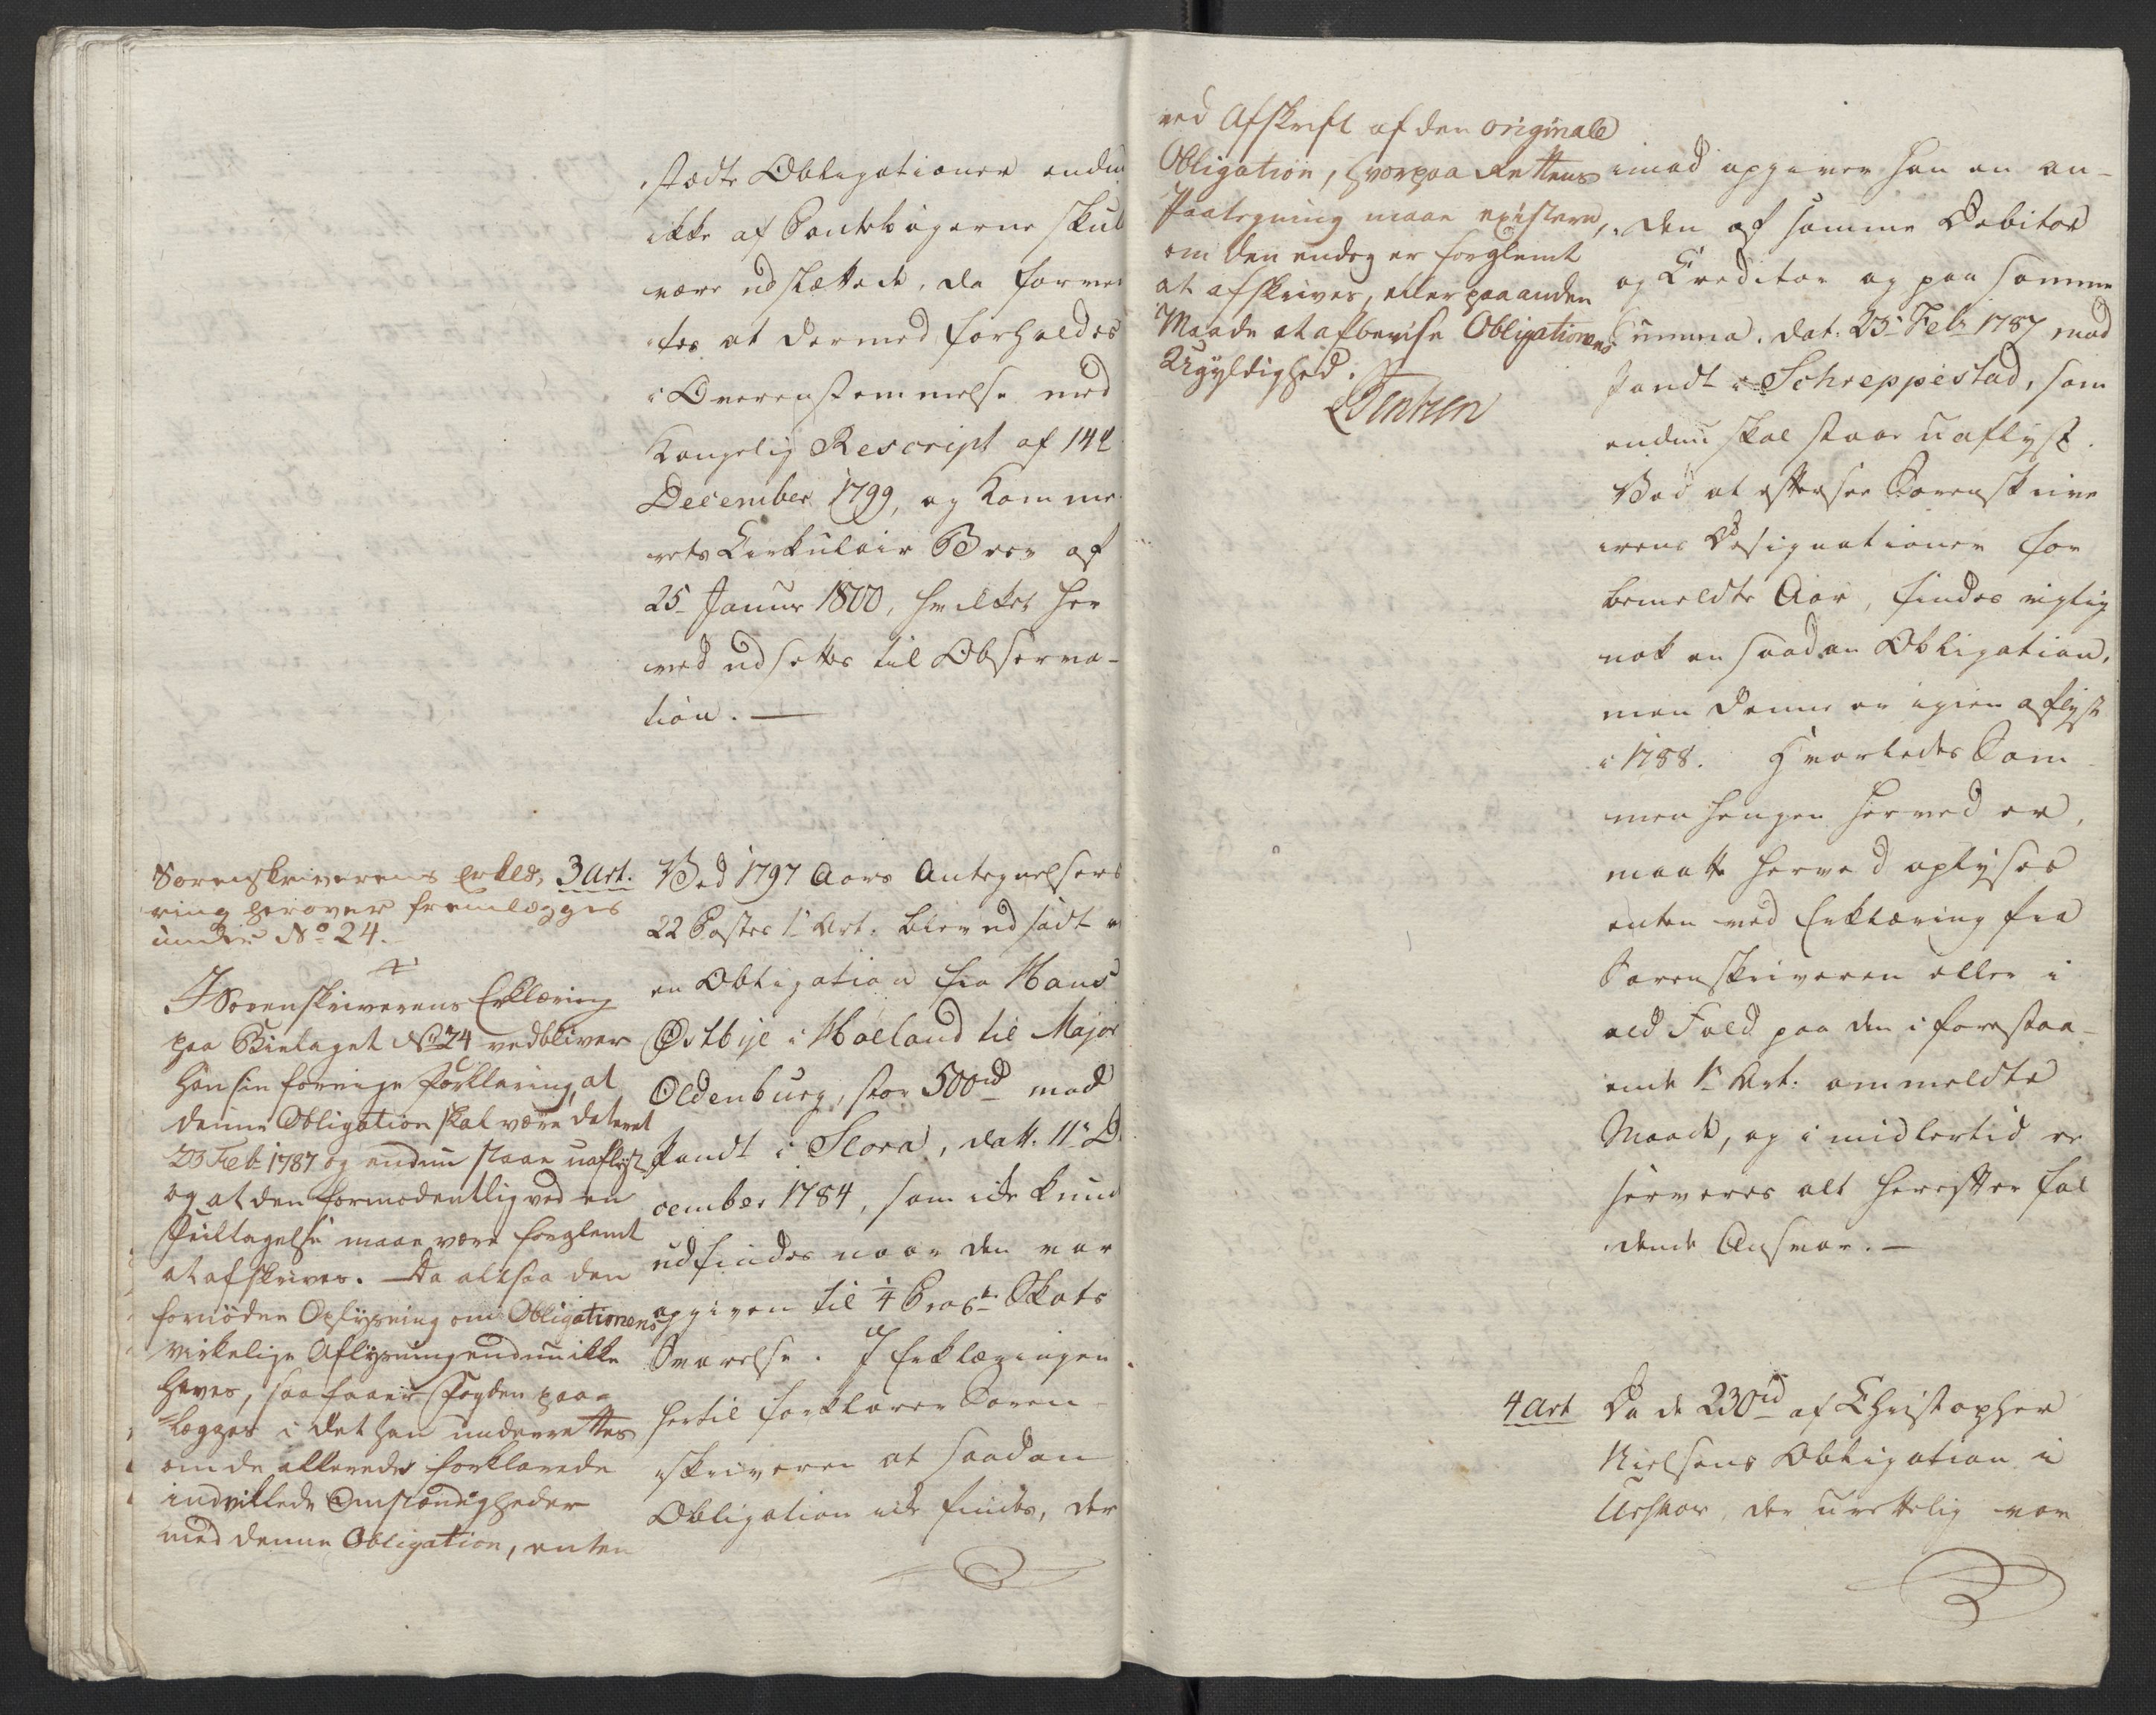 stædte Obligationer endnu
ikke af Pantebøgerne skul
være udslettede, da forven
tes at dermed forholdes
i Overensstemmelse med
Kongelig Rescript af 14de
December 1799, og Kamme
rets Cirkulair Brev af
25 Januar 1800, hvilket her
ved udsettes til Observa-
tion. —
Sorenskriverens Erklæ-
ring herover fremlægges
under No 24.
I Sorenskriverens Erklæring
paa Bielaget No 24 vedbliver
han sin forrige Forklaring, at
denne Obligation skal være dateret
23 Feb 1787 og endnu staae uaflyst
og at den formodentlig ved en
Feiltagelse maae være forglemt
at afskrives. Da altsaa den
fornødne Oplysning om Obligationens
virkelige Aflysning endnu ikke
haves, saa faaer Fogden paa-
lægges i det han underrettes
om de allerede forklarede
indviklede Omstændigheder
med denne Obligation, enten
3 Art.
Ved 1797 Aars Antegnelsers
22 Postes 1 Art. blev udsadt
en Obligation fra Hans
Østbye i Holland til Major
Oldenburg, stor 500 rd mod
Pandt i Slora, datt. 11 De
cember 1784, som icke kund
udfindes naar den var
opgiven til 1/4 Proct Skats
Svarelse. I Erklæringen
hertil forklarer Soren-
skriveren at saadan
Obligation icke findes, der
ved Afskrift af den originale
Obligation, hvorpaa Rettens
Paategning maae existere,
om den endog er forglemt
at afskrives, eller paa anden
Maade at afbevise Obligationens
Ugyldighed.
imod opgiver han en an-
den af samme Debitor
og Creditor og paa samme
Summa, dat: 23 Feb 1787 mod
Pandt i Schreppestad, som
endnu skal staae uaflyst.
Ved at eftersee Sorenskrive
rens Designationer for
bemeldte Aar, findes rigtig
nok en saadan Obligation,
men denne er igien aflyst
i 1788. Hvorledes Sam
menhengen herved er,
maatte herved oplyses
enten ved Erklæring fra
Sorenskriveren eller i
ald Fald paa den i forestaa-
ende 1 Art. ommeldte
Maade, og imidlertid re
serveres alt herefter fal
dende Ansvar. —
4 Art
Da de 230 rd af Christopher
Nielsens Obligation i
der urettelig var